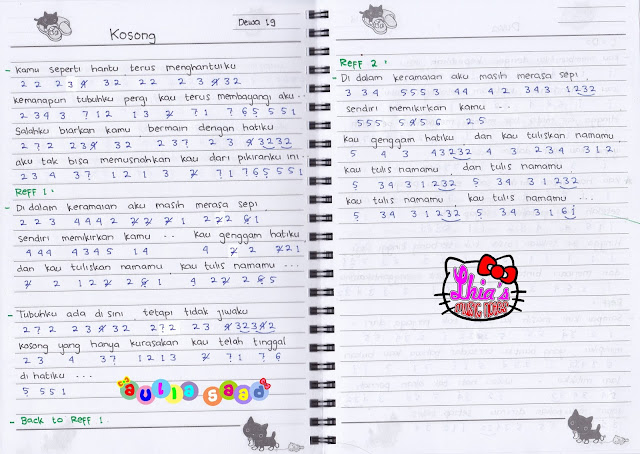 Kosong
Dewa 19
- Kamu seperti hantu terus menghantuiku
2 2 2 2 3 4 3 2 2 2 2 3 4 3 2
kemanapun tubuhku pergi kau terus membayangi aku..
2 3 4 3 7 1 2 1 3 7 1 7 6 5 5 5 1
Salahku biarkan kamu bermain dengan hatiku
aku tak bisa memusnahkan kau dari pikiranku ini..
2 3 4 3 7 1 2 1 3 7 1 7 6 5 5 5 1
Reff 1 :
- Di dalam keramaian aku masih merasa sepi
sendiri memikirkan kamu ... kau genggam hatiku
4 4 4 4 3 4 5 1 4
dan kau tuliskan namamu, kau tulis namamu ...
- Tubuhku ada di sini, tetapi tidak jiwaku
kosong yang hanya kurasakan kau telah tinggal
2 3 4 3 7 1 2 1 3 7 1 7 6
di hatiku ...
5 5 5 1
aulia saad
- Back to Reff 1.
Reff 2 :
- Di dalam keramaian aku masih merasa sepi,
3 3 4 5 5 5 3 4 4 4 2 3 4 3 1 2 3 2
sendiri memikirkan kamu ...
5 5 5 5 4 5 6 2 5
kau genggam hatiku dan kau tuliskan namamu,
5 4 3 4 3 2 3 2 4 3 2 3 4 3 1 2
kau tulis namamu, dan tulis namamu,
5 3 4 3 1 2 3 2 5 3 4 3 1 2 3 2
kau tulis namamu, kau tulis namamu ...
5 3 4 3 1 2 3 2 5 3 4 3 1 6 1
Lhia's
MUSIC NOTES